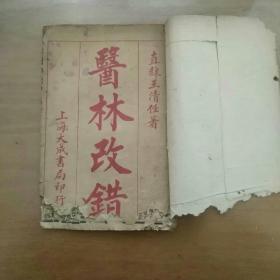 直隸王清任著
醫林改錯
上海大成書局印行